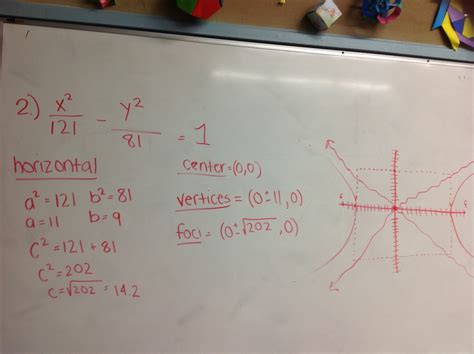 2.) x²/121 - y²/81 = 1
horizontal
a² = 121 b² = 81
a = 11 b = 9
c² = 121 + 81
c² = 202
c = √202 = 14.2
center = (0,0)
vertices = (0 ± 11, 0)
foci = (0 ± √202, 0)